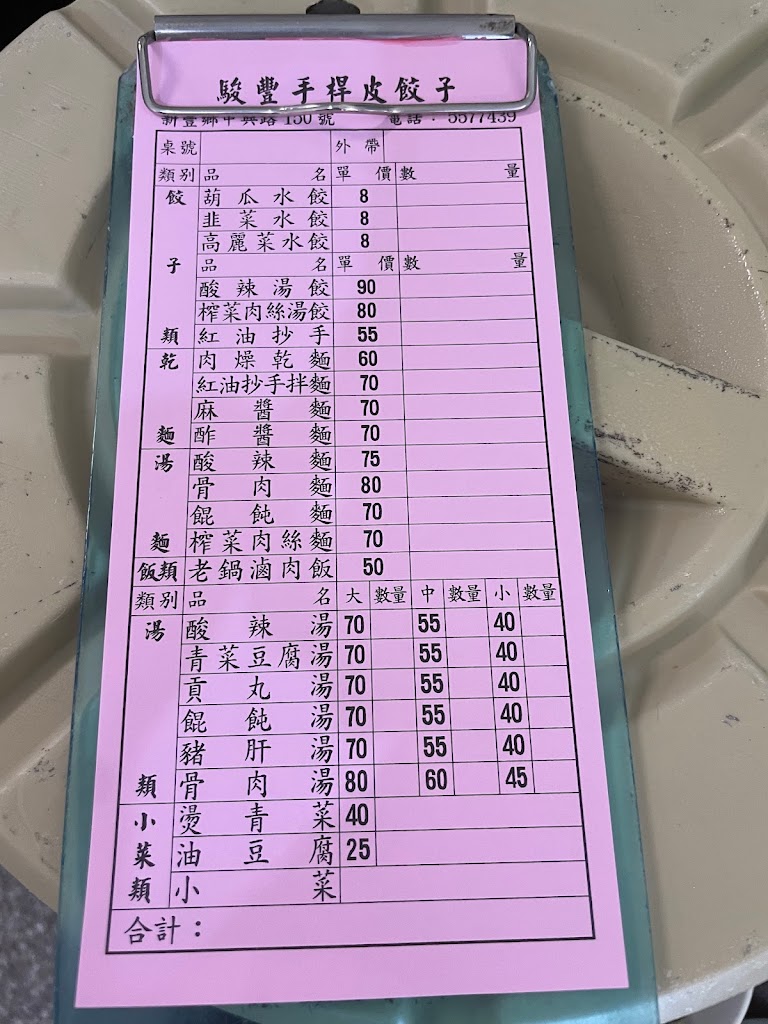 駿豐手桿皮餃子
新豐鄉中興路150號 電話：5577439
桌號 外帶
類別 品名 單價 數量
餃 葫瓜水餃 8
韭菜水餃 8
高麗菜水餃 8
子 品名 單價 數量
酸辣湯餃 90
榨菜肉絲湯餃 80
類 紅油抄手 55
乾 肉燥乾麵 60
紅油抄手拌麵 70
麻醬麵 70
麵 酢醬麵 70
湯 酸辣麵 75
骨肉麵 80
餛飩麵 70
麵 榨菜肉絲麵 70
飯類 老鍋滷肉飯 50
類別 品名 大 數量 中 數量 小 數量
湯 酸辣湯 70 55 40
青菜豆腐湯 70 55 40
貢丸湯 70 55 40
餛飩湯 70 55 40
豬肝湯 70 55 40
類 骨肉湯 80 60 45
小 燙青菜 40
菜 油豆腐 25
類 小菜
合計：